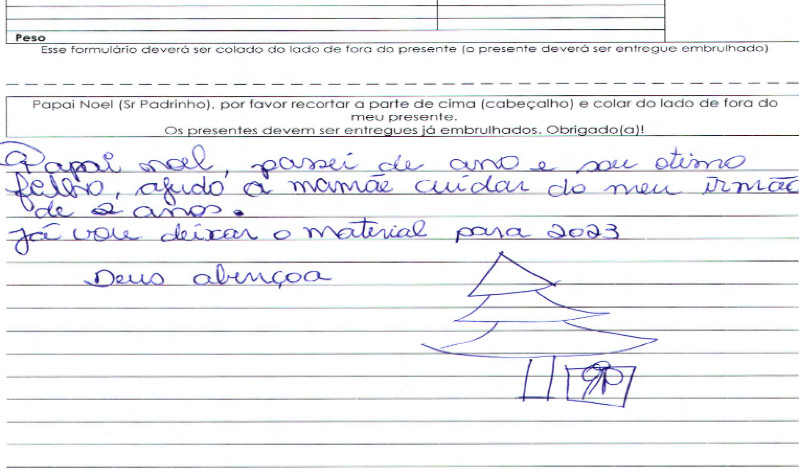 Peso
Esse formulário deverá ser colado do lado de fora do presente (o presente deverá ser entregue embrulhado)
Papai Noel (Sr Padrinho), por favor recortar a parte de cima (cabeçalho) e colar do lado de fora do
meu presente.
Os presentes devem ser entregues já embrulhados. Obrigado(a)!
Papai noel, passei de ano e sou otimo
filho, ajudo a mamãe cuidar do meu irmão
de 2 anos.
Já vou deixar o material para 2023
Deus abençoa